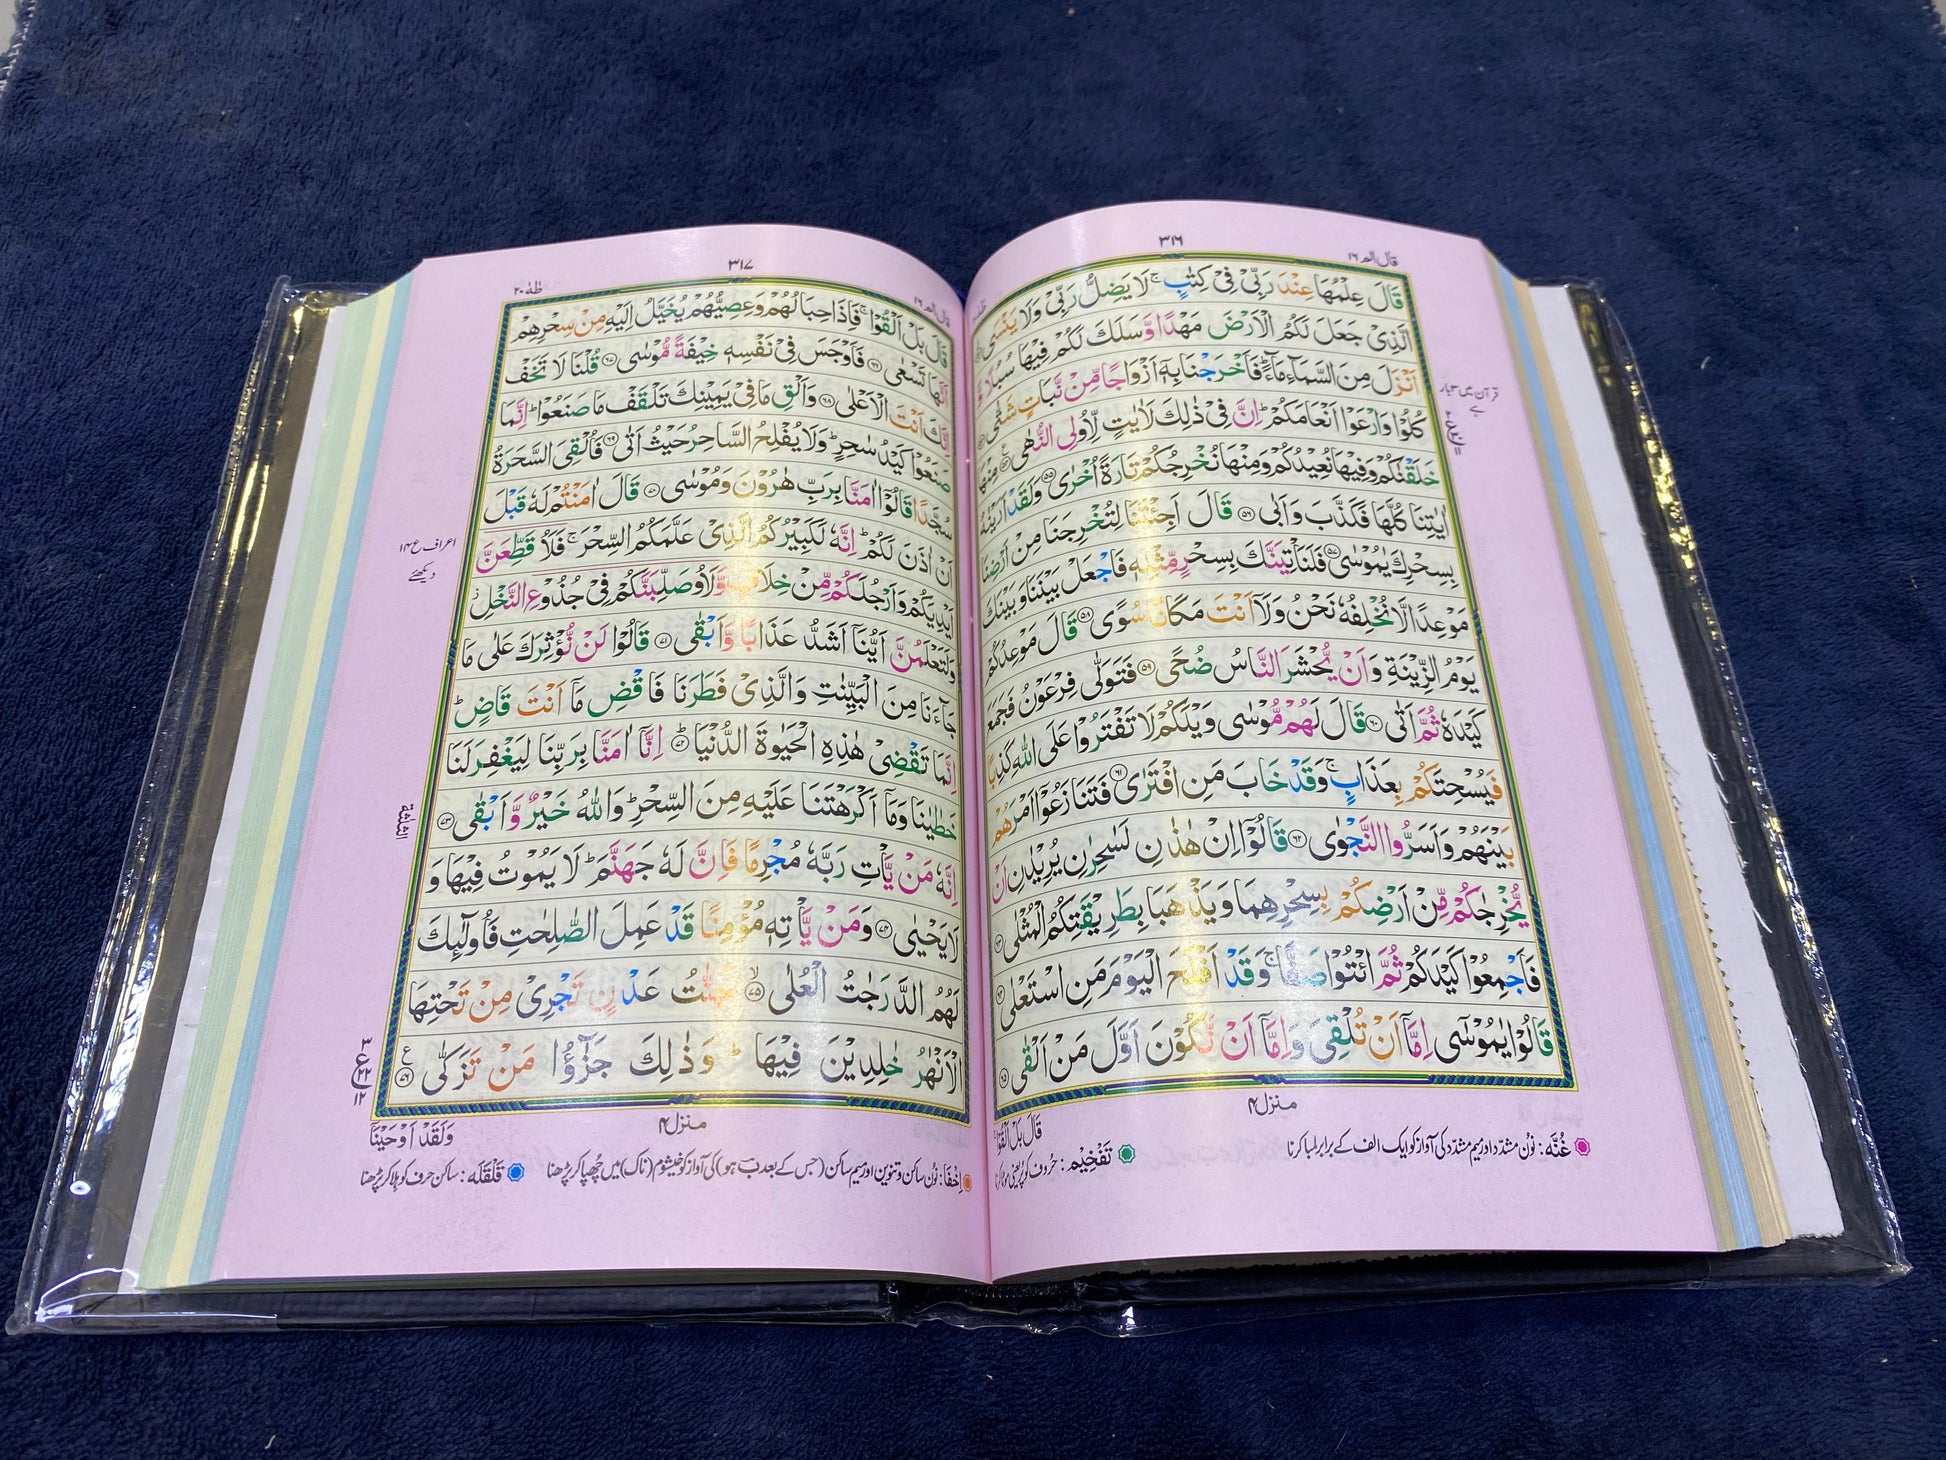 ٣١٦
قال الم ١٦
قَالَ عِلْمُهَا عِنْدَ رَبِّیْ فِیْ كِتٰبٍ ۚ لَا یَضِلُّ رَبِّیْ وَلَا یَنْسَی
الَّذِیْ جَعَلَ لَكُمُ الْاَرْضَ مَهْدًا وَّسَلَكَ لَكُمْ فِیْهَا سُبُلًا وَّ
اَنْزَلَ مِنَ السَّمَآءِ مَآءً ؕ فَاَخْرَجْنَا بِهٖۤ اَزْوَاجًا مِّنْ نَّبَاتٍ شَتّٰی
كُلُوْا وَارْعَوْا اَنْعَامَكُمْ ؕ اِنَّ فِیْ ذٰلِكَ لَاٰیٰتٍ لِّاُولِی النُّهٰی
خَلَقْنٰكُمْ وَفِیْهَا نُعِیْدُكُمْ وَمِنْهَا نُخْرِجُكُمْ تَارَةً اُخْرٰی ۵۵ وَلَقَدْ اَرَیْنٰهُ
اٰیٰتِنَا كُلَّهَا فَكَذَّبَ وَاَبٰی ۵۶ قَالَ اَجِئْتَنَا لِتُخْرِجَنَا مِنْ اَرْضِنَا
بِسِحْرِكَ یٰمُوْسٰی ۵۷ فَلَنَاْتِیَنَّكَ بِسِحْرٍ مِّثْلِهٖ فَاجْعَلْ بَیْنَنَا وَبَیْنَكَ
مَوْعِدًا لَّا نُخْلِفُهٗ نَحْنُ وَلَاۤ اَنْتَ مَكَانًا سُوًی ۵۸ قَالَ مَوْعِدُكُمْ
یَوْمُ الزِّیْنَةِ وَاَنْ یُّحْشَرَ النَّاسُ ضُحًی ۵۹ فَتَوَلّٰی فِرْعَوْنُ فَجَمَعَ
كَیْدَهٗ ثُمَّ اَتٰی ۶۰ قَالَ لَهُمْ مُّوْسٰی وَیْلَكُمْ لَا تَفْتَرُوْا عَلَی اللّٰهِ كَذِبًا
فَیُسْحِتَكُمْ بِعَذَابٍ ۚ وَقَدْ خَابَ مَنِ افْتَرٰی ۶۱ فَتَنَازَعُوْۤا اَمْرَهُمْ
بَیْنَهُمْ وَاَسَرُّوا النَّجْوٰی ۶۲ قَالُوْۤا اِنْ هٰذٰىنِ لَسٰحِرٰنِ یُرِیْدٰنِ اَنْ
یُّخْرِجٰكُمْ مِّنْ اَرْضِكُمْ بِسِحْرِهِمَا وَیَذْهَبَا بِطَرِیْقَتِكُمُ الْمُثْلٰی ۶۳
فَاَجْمِعُوْا كَیْدَكُمْ ثُمَّ ائْتُوْا صَفًّا ۚ وَقَدْ اَفْلَحَ الْیَوْمَ مَنِ اسْتَعْلٰی ۶۴
قَالُوْا یٰمُوْسٰۤی اِمَّاۤ اَنْ تُلْقِیَ وَاِمَّاۤ اَنْ نَّكُوْنَ اَوَّلَ مَنْ اَلْقٰی ۶۵
قرآن میں ۳ بار
ہے
منزل ۴
قَالَ بَلْ اَلْقُوْا
غُنَّہ : نُون مشدّد اور میم مشدّد کی آواز کو ایک الف کے برابر لمبا کرنا
تَفْخِیْم : حُروف کو پُر یعنی موٹا کرنا
٣١٧
طٰهٰ ٢٠
قال الم ١٦
قَالَ بَلْ اَلْقُوْا ۚ فَاِذَا حِبَالُهُمْ وَعِصِیُّهُمْ یُخَیَّلُ اِلَیْهِ مِنْ سِحْرِهِمْ
اَنَّهَا تَسْعٰی ۶۶ فَاَوْجَسَ فِیْ نَفْسِهٖ خِیْفَةً مُّوْسٰی ۶۷ قُلْنَا لَا تَخَفْ
اِنَّكَ اَنْتَ الْاَعْلٰی ۶۸ وَاَلْقِ مَا فِیْ یَمِیْنِكَ تَلْقَفْ مَا صَنَعُوْا ؕ اِنَّمَا
صَنَعُوْا كَیْدُ سٰحِرٍ ؕ وَلَا یُفْلِحُ السَّاحِرُ حَیْثُ اَتٰی ۶۹ فَاُلْقِیَ السَّحَرَةُ
سُجَّدًا قَالُوْۤا اٰمَنَّا بِرَبِّ هٰرُوْنَ وَمُوْسٰی ۷۰ قَالَ اٰمَنْتُمْ لَهٗ قَبْلَ
اَنْ اٰذَنَ لَكُمْ ؕ اِنَّهٗ لَكَبِیْرُكُمُ الَّذِیْ عَلَّمَكُمُ السِّحْرَ ۚ فَلَاُقَطِّعَنَّ
اَیْدِیَكُمْ وَاَرْجُلَكُمْ مِّنْ خِلَافٍ وَّلَاُوصَلِّبَنَّكُمْ فِیْ جُذُوْعِ النَّخْلِ
وَلَتَعْلَمُنَّ اَیُّنَاۤ اَشَدُّ عَذَابًا وَّاَبْقٰی ۷۱ قَالُوْا لَنْ نُّؤْثِرَكَ عَلٰی مَا
جَآءَنَا مِنَ الْبَیِّنٰتِ وَالَّذِیْ فَطَرَنَا فَاقْضِ مَاۤ اَنْتَ قَاضٍ ؕ
اِنَّمَا تَقْضِیْ هٰذِهِ الْحَیٰوةَ الدُّنْیَا ؕ ۷۲ اِنَّاۤ اٰمَنَّا بِرَبِّنَا لِیَغْفِرَ لَنَا
خَطٰیٰنَا وَمَاۤ اَكْرَهْتَنَا عَلَیْهِ مِنَ السِّحْرِ ؕ وَاللّٰهُ خَیْرٌ وَّاَبْقٰی ۷۳
اِنَّهٗ مَنْ یَّاْتِ رَبَّهٗ مُجْرِمًا فَاِنَّ لَهٗ جَهَنَّمَ ؕ لَا یَمُوْتُ فِیْهَا وَ
لَا یَحْیٰی ۷۴ وَمَنْ یَّاْتِهٖ مُؤْمِنًا قَدْ عَمِلَ الصّٰلِحٰتِ فَاُولٰٓىِٕكَ
لَهُمُ الدَّرَجٰتُ الْعُلٰی ۷۵ جَنّٰتُ عَدْنٍ تَجْرِیْ مِنْ تَحْتِهَا
الْاَنْهٰرُ خٰلِدِیْنَ فِیْهَا ؕ وَذٰلِكَ جَزٰٓؤُا مَنْ تَزَكّٰی ۷۶
اعراف ع ۱۴
دیکھئے
الثلٰثة
منزل ۴
وَلَقَدْ اَوْحَیْنَا
اِخْفَا : نُون ساکن و تنوین اور میم ساکن (جس کے بعد ب ہو) کی آواز کو خیشوم (ناک) میں چُھپا کر پڑھنا
قَلْقَلَہ : ساکن حرف کو ہلا کر پڑھنا